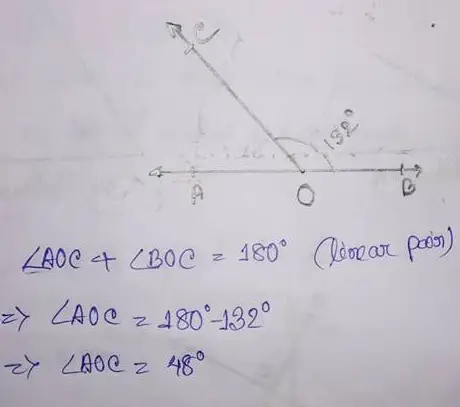 C
132°
A O B
∠AOC + ∠BOC = 180° (linear pair)
=> ∠AOC = 180°-132°
=> ∠AOC = 48°